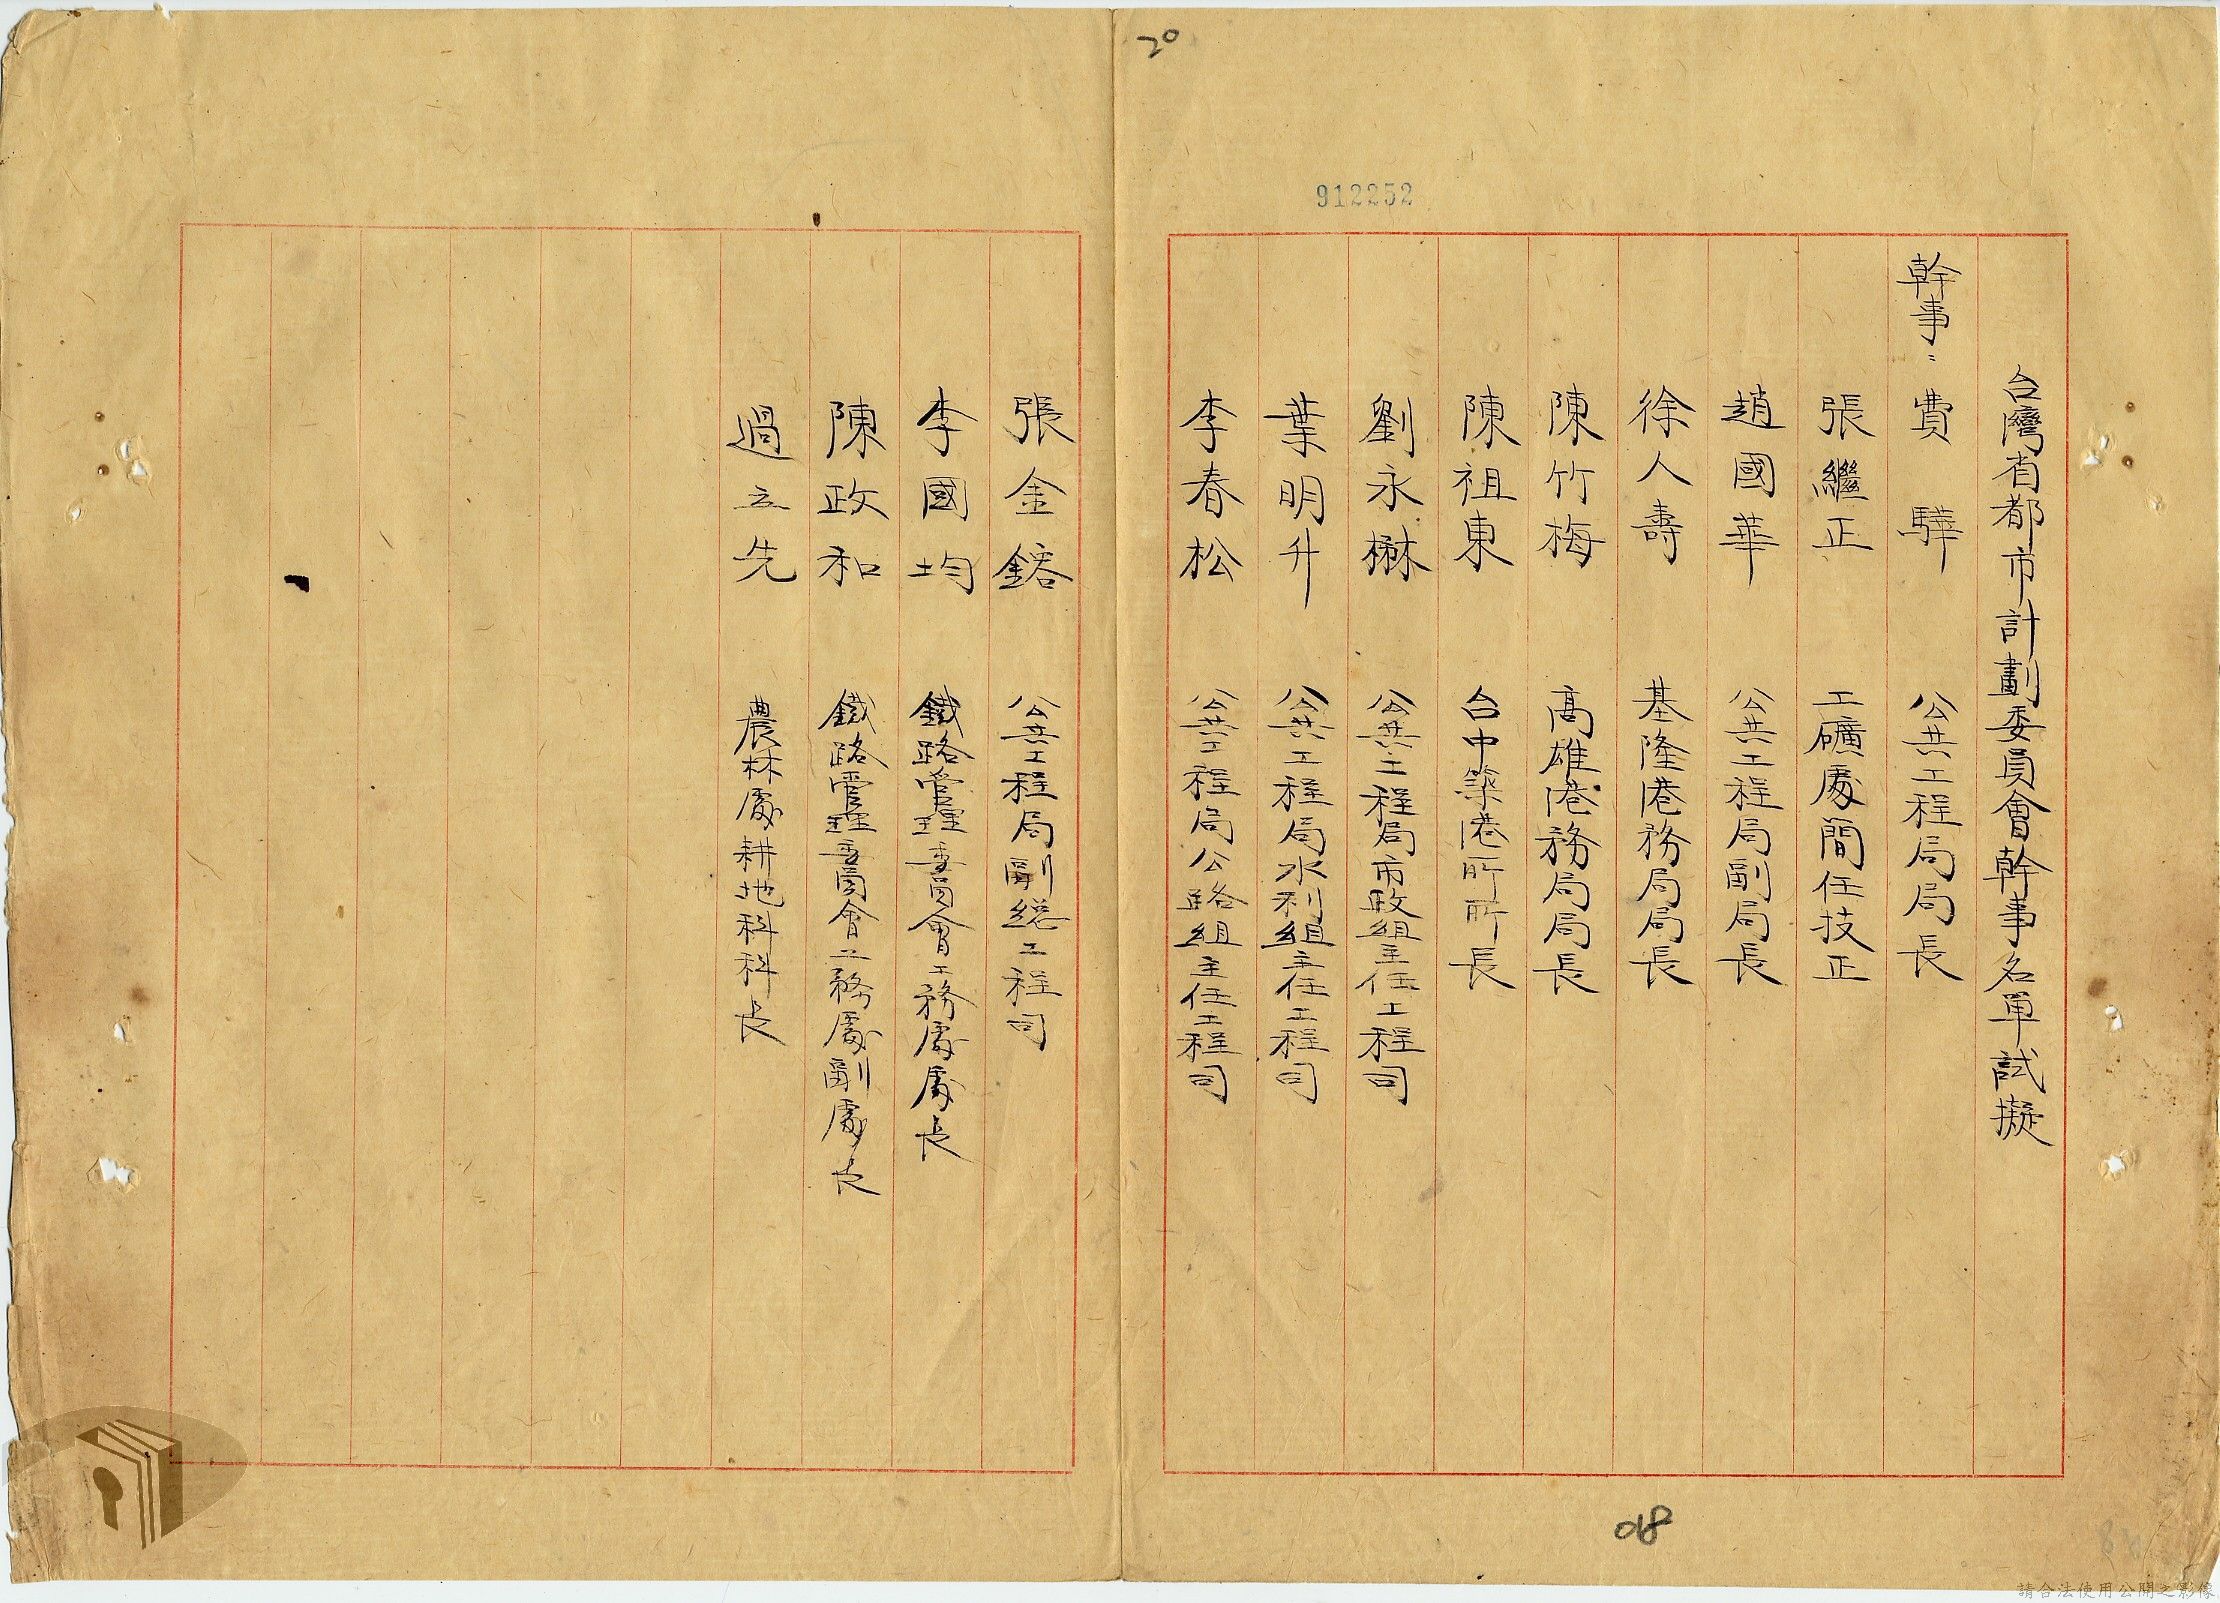 20
912252
台灣省都市計劃委員會幹事名單試擬
幹事：費　驊　公共工程局局長
張繼正　工礦處簡任技正
趙國華　公共工程局副局長
徐人壽　基隆港務局局長
陳竹梅　高雄港務局局長
陳祖東　台中築港所所長
劉永楙　公共工程局市政組主任工程司
葉明升　公共工程局水利組主任工程司
李春松　公共工程局公路組主任工程司
張金鎔　公共工程局副總工程司
李國均　鐵路管理委員會工務處處長
陳政和　鐵路管理委員會工務處副處長
過立先　農林處耕地科科長
018
請合法使用公開之影像